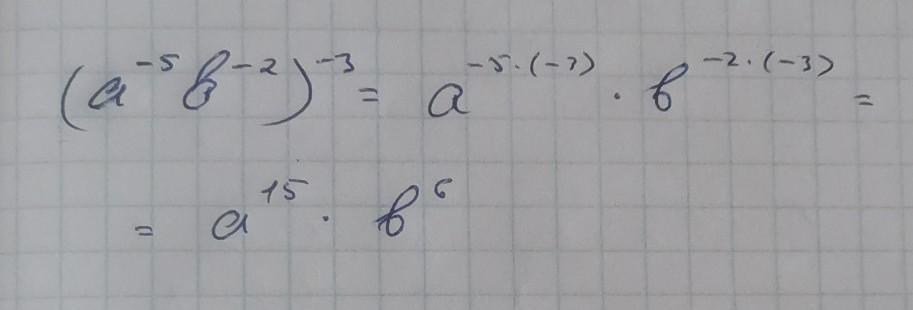 (a⁻⁵b⁻²)⁻³ = a⁻⁵·⁽⁻³⁾ · b⁻²·⁽⁻³⁾ =
= a¹⁵ · b⁶